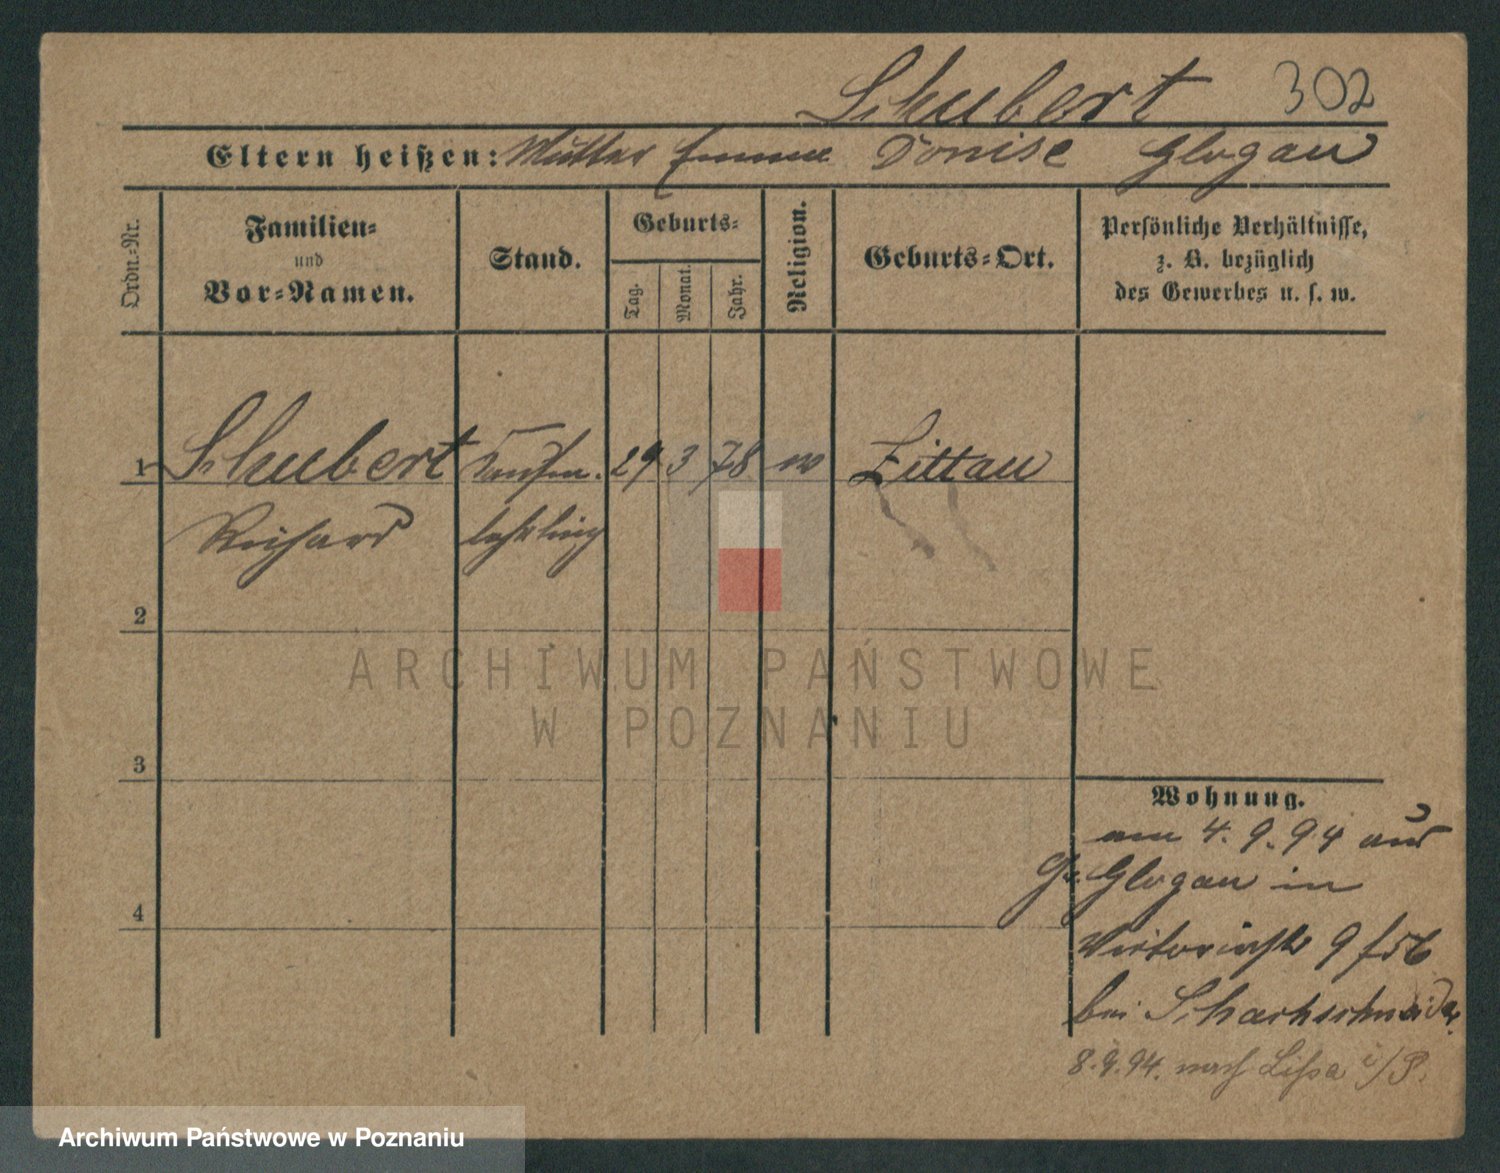 Schubert 302
Eltern heißen: Mutter Emma Donise Glogau
Ordn.-Nr.
Familien-
und
Vor-Namen.
Stand.
Geburts-
Tag.
Monat.
Jahr.
Religion.
Geburts-Ort.
Persönliche Verhältnisse,
z. B. bezüglich
des Gewerbes u. s. w.
1 Schubert Kaufm. 29 3 78 Zittau
Richard lehrling
2
3
4
Wohnung.
am 4.9.94 aus
Gr. Glogau in
Victoriastr 9
bei Schachschneider
8.9.94. nach Lissa i/P.
ARCHIWUM PAŃSTWOWE
W POZNANIU
Archiwum Państwowe w Poznaniu